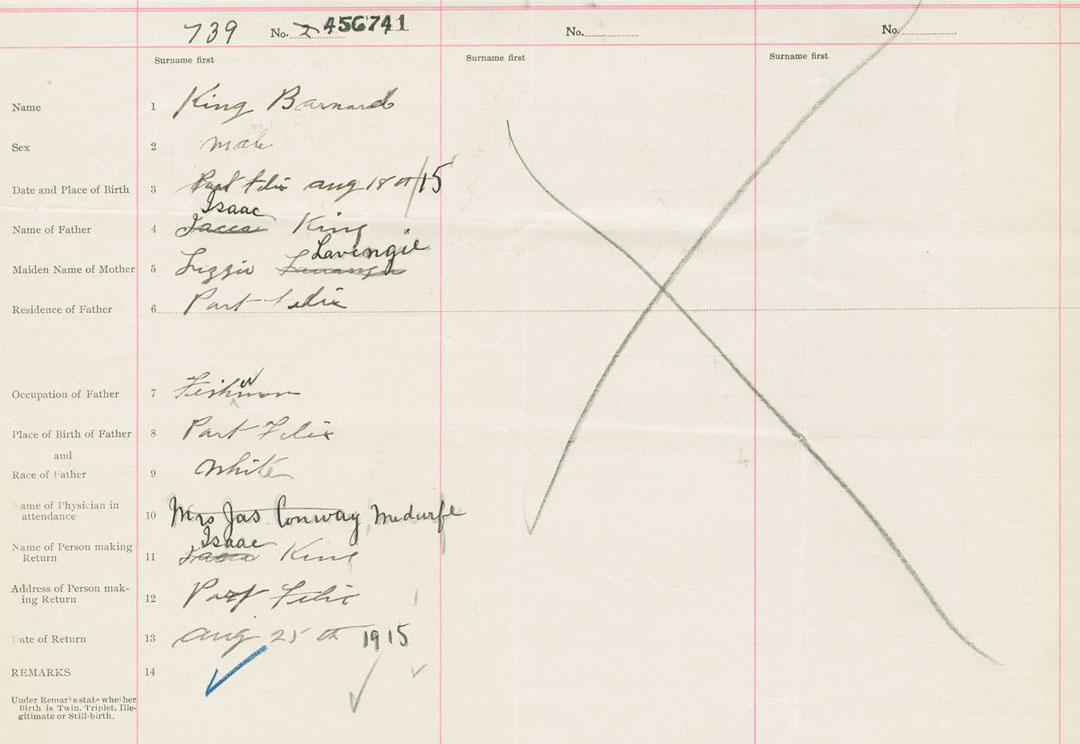 739 No. 2 456741 No. No.
Surname first Surname first Surname first
Name 1 King Barnard
Sex 2 male
Date and Place of Birth 3 Port Felix aug 18th /15
Isaac
Name of Father 4 King
Lavengie
Maiden Name of Mother 5 Lizzie
Residence of Father 6 Port Felix
Occupation of Father 7 Fishman
Place of Birth of Father 8 Port Felix
and
Race of Father 9 White
Name of Physician in
attendance 10 Mrs Jas Conway, Medwife
Name of Person making Isaac
Return 11 King
Address of Person mak-
ing Return 12 Port Felix
Date of Return 13 aug 25th 1915
REMARKS 14
Under Remarks state whether
birth is Twin, Triplet, Ille-
gitimate or Still-birth.